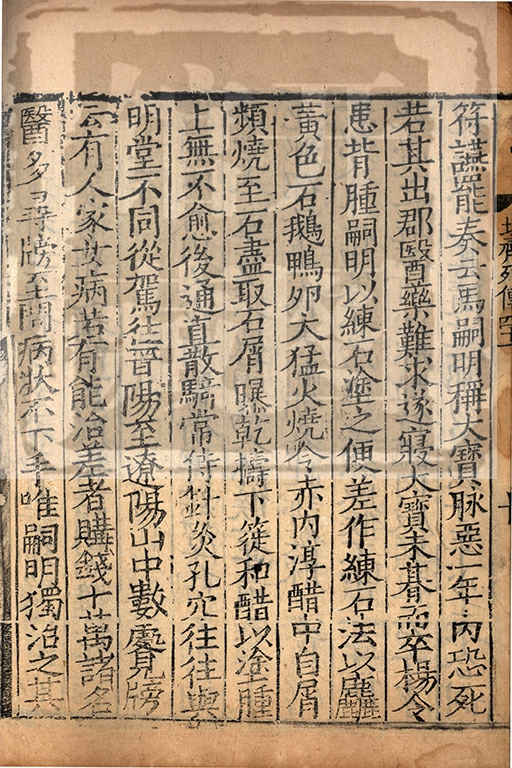 北齊列傳四十一
符讌罷奏云馬嗣明稱大寶脉惡一年内恐死
若其出郡醫藥難求遂寢大寶未朞而卒楊令
患背腫嗣明以練石塗之便差作練石法以麤
黃色石鵝鴨夘大猛火燒令赤内淳醋中自屑
頻燒至石盡取石屑曝乾擣下簁和醋以塗腫
上無不愈後通直散騎常侍對灸孔穴往往與
明堂不同從駕往晋陽至遼陽山中數處見牓
云有人家女病若有能治差者購錢十萬諸名
醫多尋牓至問病狀不下手唯嗣明獨治之其